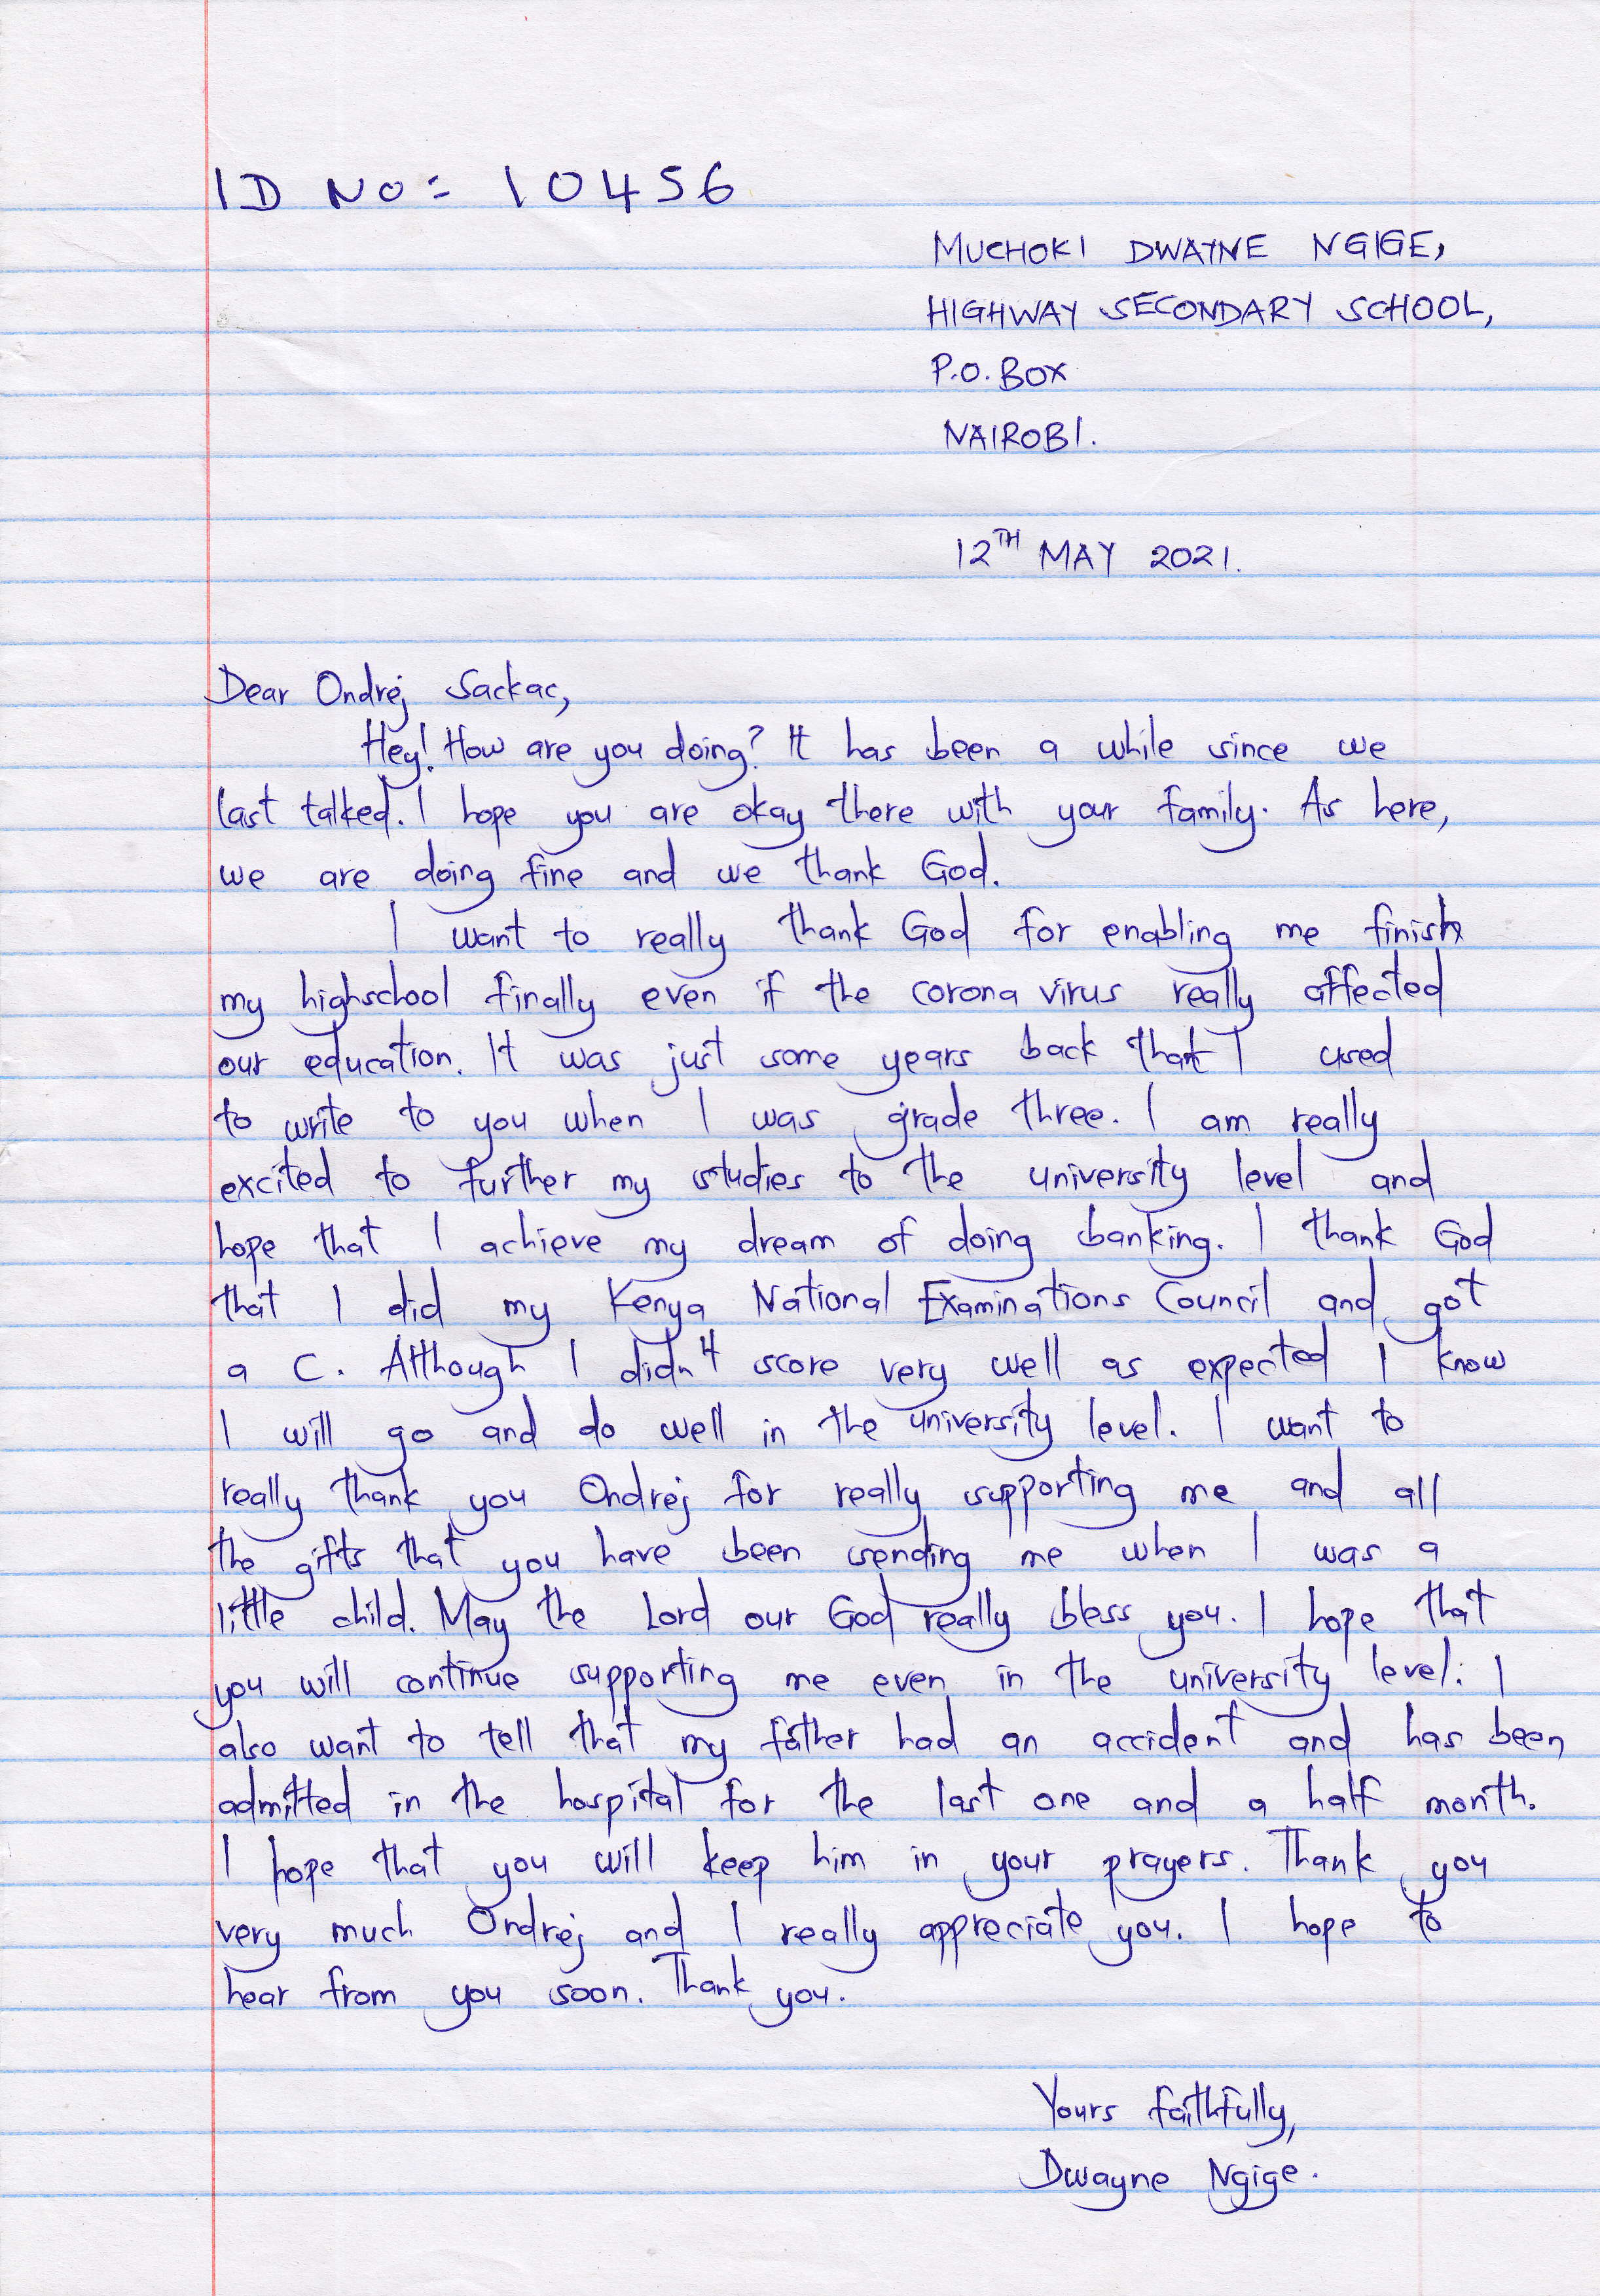 ID NO: 10456
MUCHOKI DWAYNE NGIGE,
HIGHWAY SECONDARY SCHOOL,
P.O. BOX
NAIROBI.
12TH MAY 2021.
Dear Ondrej Sackac,
Hey! How are you doing? It has been a while since we
last talked. I hope you are okay there with your family. As here,
we are doing fine and we thank God.
I want to really thank God for enabling me finish
my highschool finally even if the corona virus really affected
our education. It was just some years back that I used
to write to you when I was grade three. I am really
excited to further my studies to the university level and
hope that I achieve my dream of doing banking. I thank God
that I did my Kenya National Examinations Council and got
a C. Although I didn't score very well as expected I know
I will go and do well in the university level. I want to
really thank you Ondrej for really supporting me and all
the gifts that you have been sending me when I was a
little child. May the Lord our God really bless you. I hope that
you will continue supporting me even in the university level. I
also want to tell that my father had an accident and has been
admitted in the hospital for the last one and a half month.
I hope that you will keep him in your prayers. Thank you
very much Ondrej and I really appreciate you. I hope to
hear from you soon. Thank you.
Yours faithfully,
Dwayne Ngige.